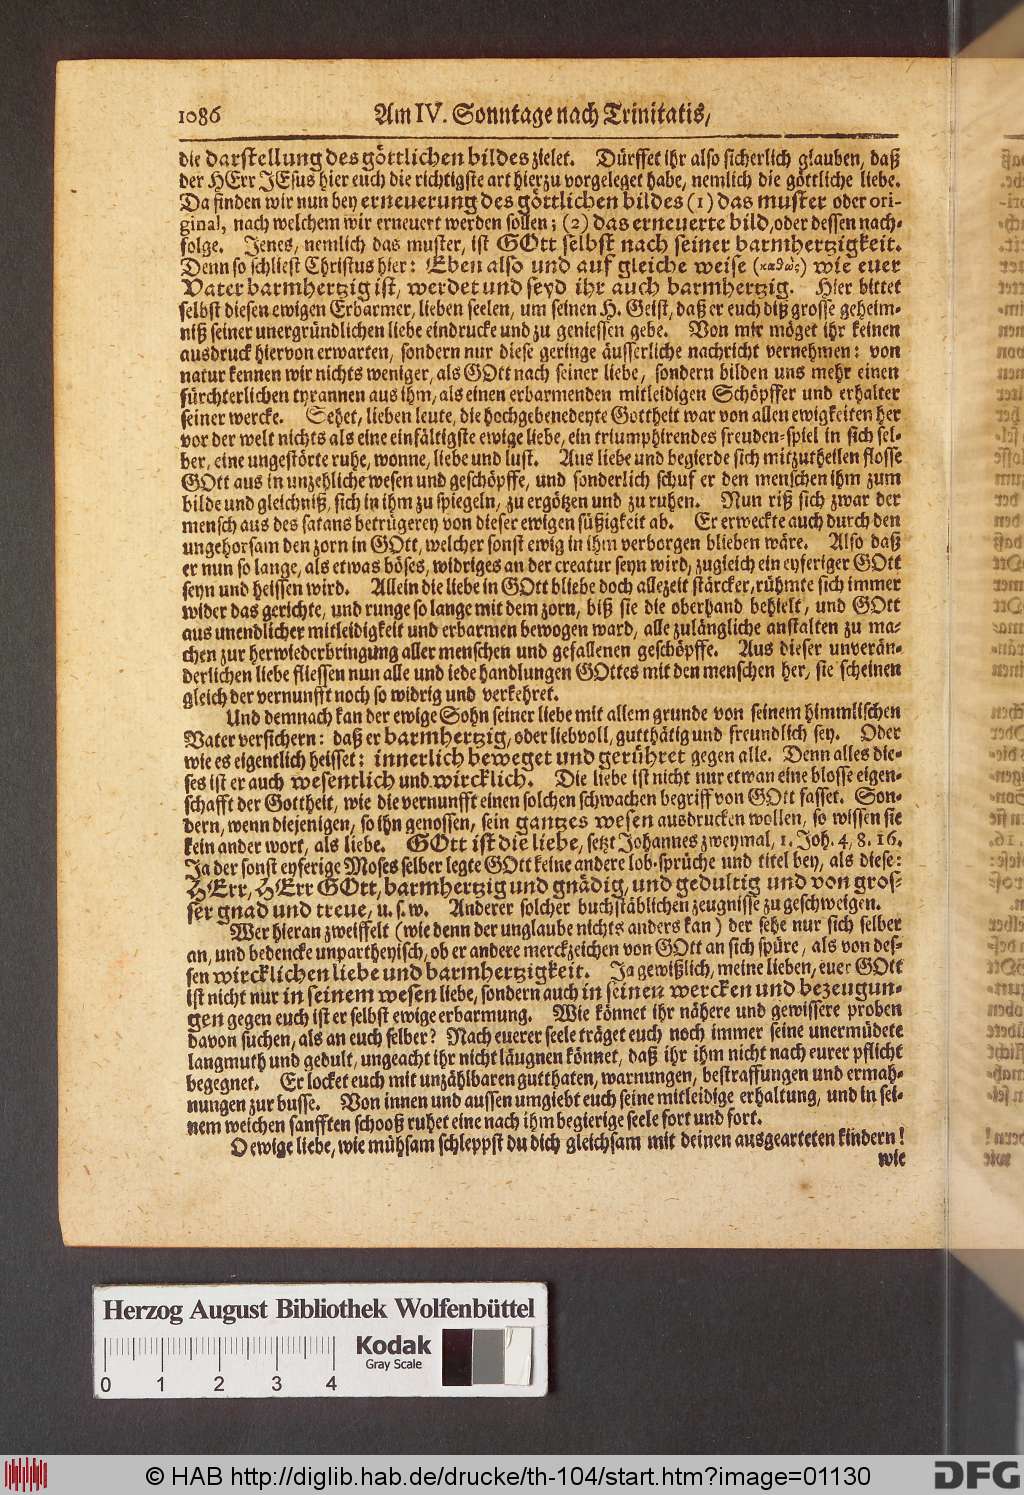 1086 Am IV. Sonntage nach Trinitatis,
die darstellung des göttlichen bildes zielet. Dürffet ihr also sicherlich glauben, daß
der HErr JEsus hier euch die richtigste art hierzu vorgeleget habe, nemlich die göttliche liebe.
Da finden wir nun bey erneuerung des göttlichen bildes (1) das muster oder ori-
ginal, nach welchem wir erneuert werden sollen; (2) das erneuerte bild, oder dessen nach-
folge. Jenes, nemlich das muster, ist GOtt selbst nach seiner barmhertzigkeit.
Denn so schliest Christus hier: Eben also und auf gleiche weise (καθὼς) wie euer
Vater barmhertzig ist, werdet und seyd ihr auch barmhertzig. Hier bittet
selbst diesen ewigen Erbarmer, lieben seelen, um seinen H. Geist, daß er euch diß grosse geheim-
niß seiner unergründlichen liebe eindrucke und zu geniessen gebe. Von mir möget ihr keinen
ausdruck hiervon erwarten, sondern nur diese geringe äusserliche nachricht vernehmen: von
natur kennen wir nichts weniger, als GOtt nach seiner liebe, sondern bilden uns mehr einen
fürchterlichen tyrannen aus ihm, als einen erbarmenden mitleidigen Schöpffer und erhalter
seiner wercke. Sehet, lieben leute, die hochgebenedeyte Gottheit war von allen ewigkeiten her
vor der welt nichts als eine einfältigste ewige liebe, ein triumphirendes freuden-spiel in sich sel-
ber, eine ungestörte ruhe, wonne, liebe und lust. Aus liebe und begierde sich mitzutheilen flosse
GOtt aus in unzehliche wesen und geschöpffe, und sonderlich schuf er den menschen ihm zum
bilde und gleichniß, sich in ihm zu spiegeln, zu ergötzen und zu ruhen. Nun riß sich zwar der
mensch aus des satans betrügerey von dieser ewigen süßigkeit ab. Er erweckte auch durch den
ungehorsam den zorn in GOtt, welcher sonst ewig in ihm verborgen blieben wäre. Also daß
er nun so lange, als etwas böses, widriges an der creatur seyn wird, zugleich ein eyferiger GOtt
seyn und heissen wird. Allein die liebe in GOtt bliebe doch allezeit stärcker, rühmte sich immer
wider das gerichte, und runge so lange mit dem zorn, biß sie die oberhand behielt, und GOtt
aus unendlicher mitleidigkeit und erbarmen bewogen ward, alle zulängliche anstalten zu ma-
chen zur herwiederbringung aller menschen und gefallenen geschöpffe. Aus dieser unverän-
derlichen liebe fliessen nun alle und iede handlungen GOttes mit den menschen her, sie scheinen
gleich der vernunfft noch so widrig und verkehret.
Und demnach kan der ewige Sohn seiner liebe mit allem grunde von seinem himmlischen
Vater versichern: daß er barmhertzig, oder liebvoll, gutthätig und freundlich sey. Oder
wie es eigentlich heisset: innerlich beweget und gerühret gegen alle. Denn alles die-
ses ist er auch wesentlich und wircklich. Die liebe ist nicht nur etwan eine blosse eigen-
schafft der Gottheit, wie die vernunfft einen solchen schwachen begriff von GOtt fasset. Son-
dern, wenn diejenigen, so ihn genossen, sein gantzes wesen ausdrucken wollen, so wissen sie
kein ander wort, als liebe. GOtt ist die liebe, setzt Johannes zweymal, 1. Joh. 4, 8. 16.
Ja der sonst eyferige Moses selber legte GOtt keine andere lob-sprüche und titel bey, als diese:
HErr, HErr GOtt, barmhertzig und gnädig, und gedultig und von gros-
ser gnad und treue, u. s. w. Anderer solcher buchstäblichen zeugnisse zu geschweigen.
Wer hieran zweiffelt (wie denn der unglaube nichts anders kan) der sehe nur sich selber
an, und bedencke unpartheyisch, ob er andere merckzeichen von GOtt an sich spüre, als von des-
sen wircklichen liebe und barmhertzigkeit. Ja gewißlich, meine lieben, euer GOtt
ist nicht nur in seinem wesen liebe, sondern auch in seinen wercken und bezeugun-
gen gegen euch ist er selbst ewige erbarmung. Wie könnet ihr nähere und gewissere proben
davon suchen, als an euch selber? Nach euerer seele träget euch noch immer seine unermüdete
langmuth und gedult, ungeacht ihr nicht läugnen könnet, daß ihr ihm nicht nach eurer pflicht
begegnet. Er locket euch mit unzählbaren gutthaten, warnungen, bestraffungen und ermah-
nungen zur busse. Von innen und aussen umgiebt euch seine mitleidige erhaltung, und in sei-
nem weichen sanfften schooß ruhet eine nach ihm begierige seele fort und fort.
O ewige liebe, wie mühsam schleppst du dich gleichsam mit deinen ausgearteten kindern!
wie
Herzog August Bibliothek Wolfenbüttel
Kodak
Gray Scale
0 1 2 3 4
© HAB http://diglib.hab.de/drucke/th-104/start.htm?image=01130
DFG